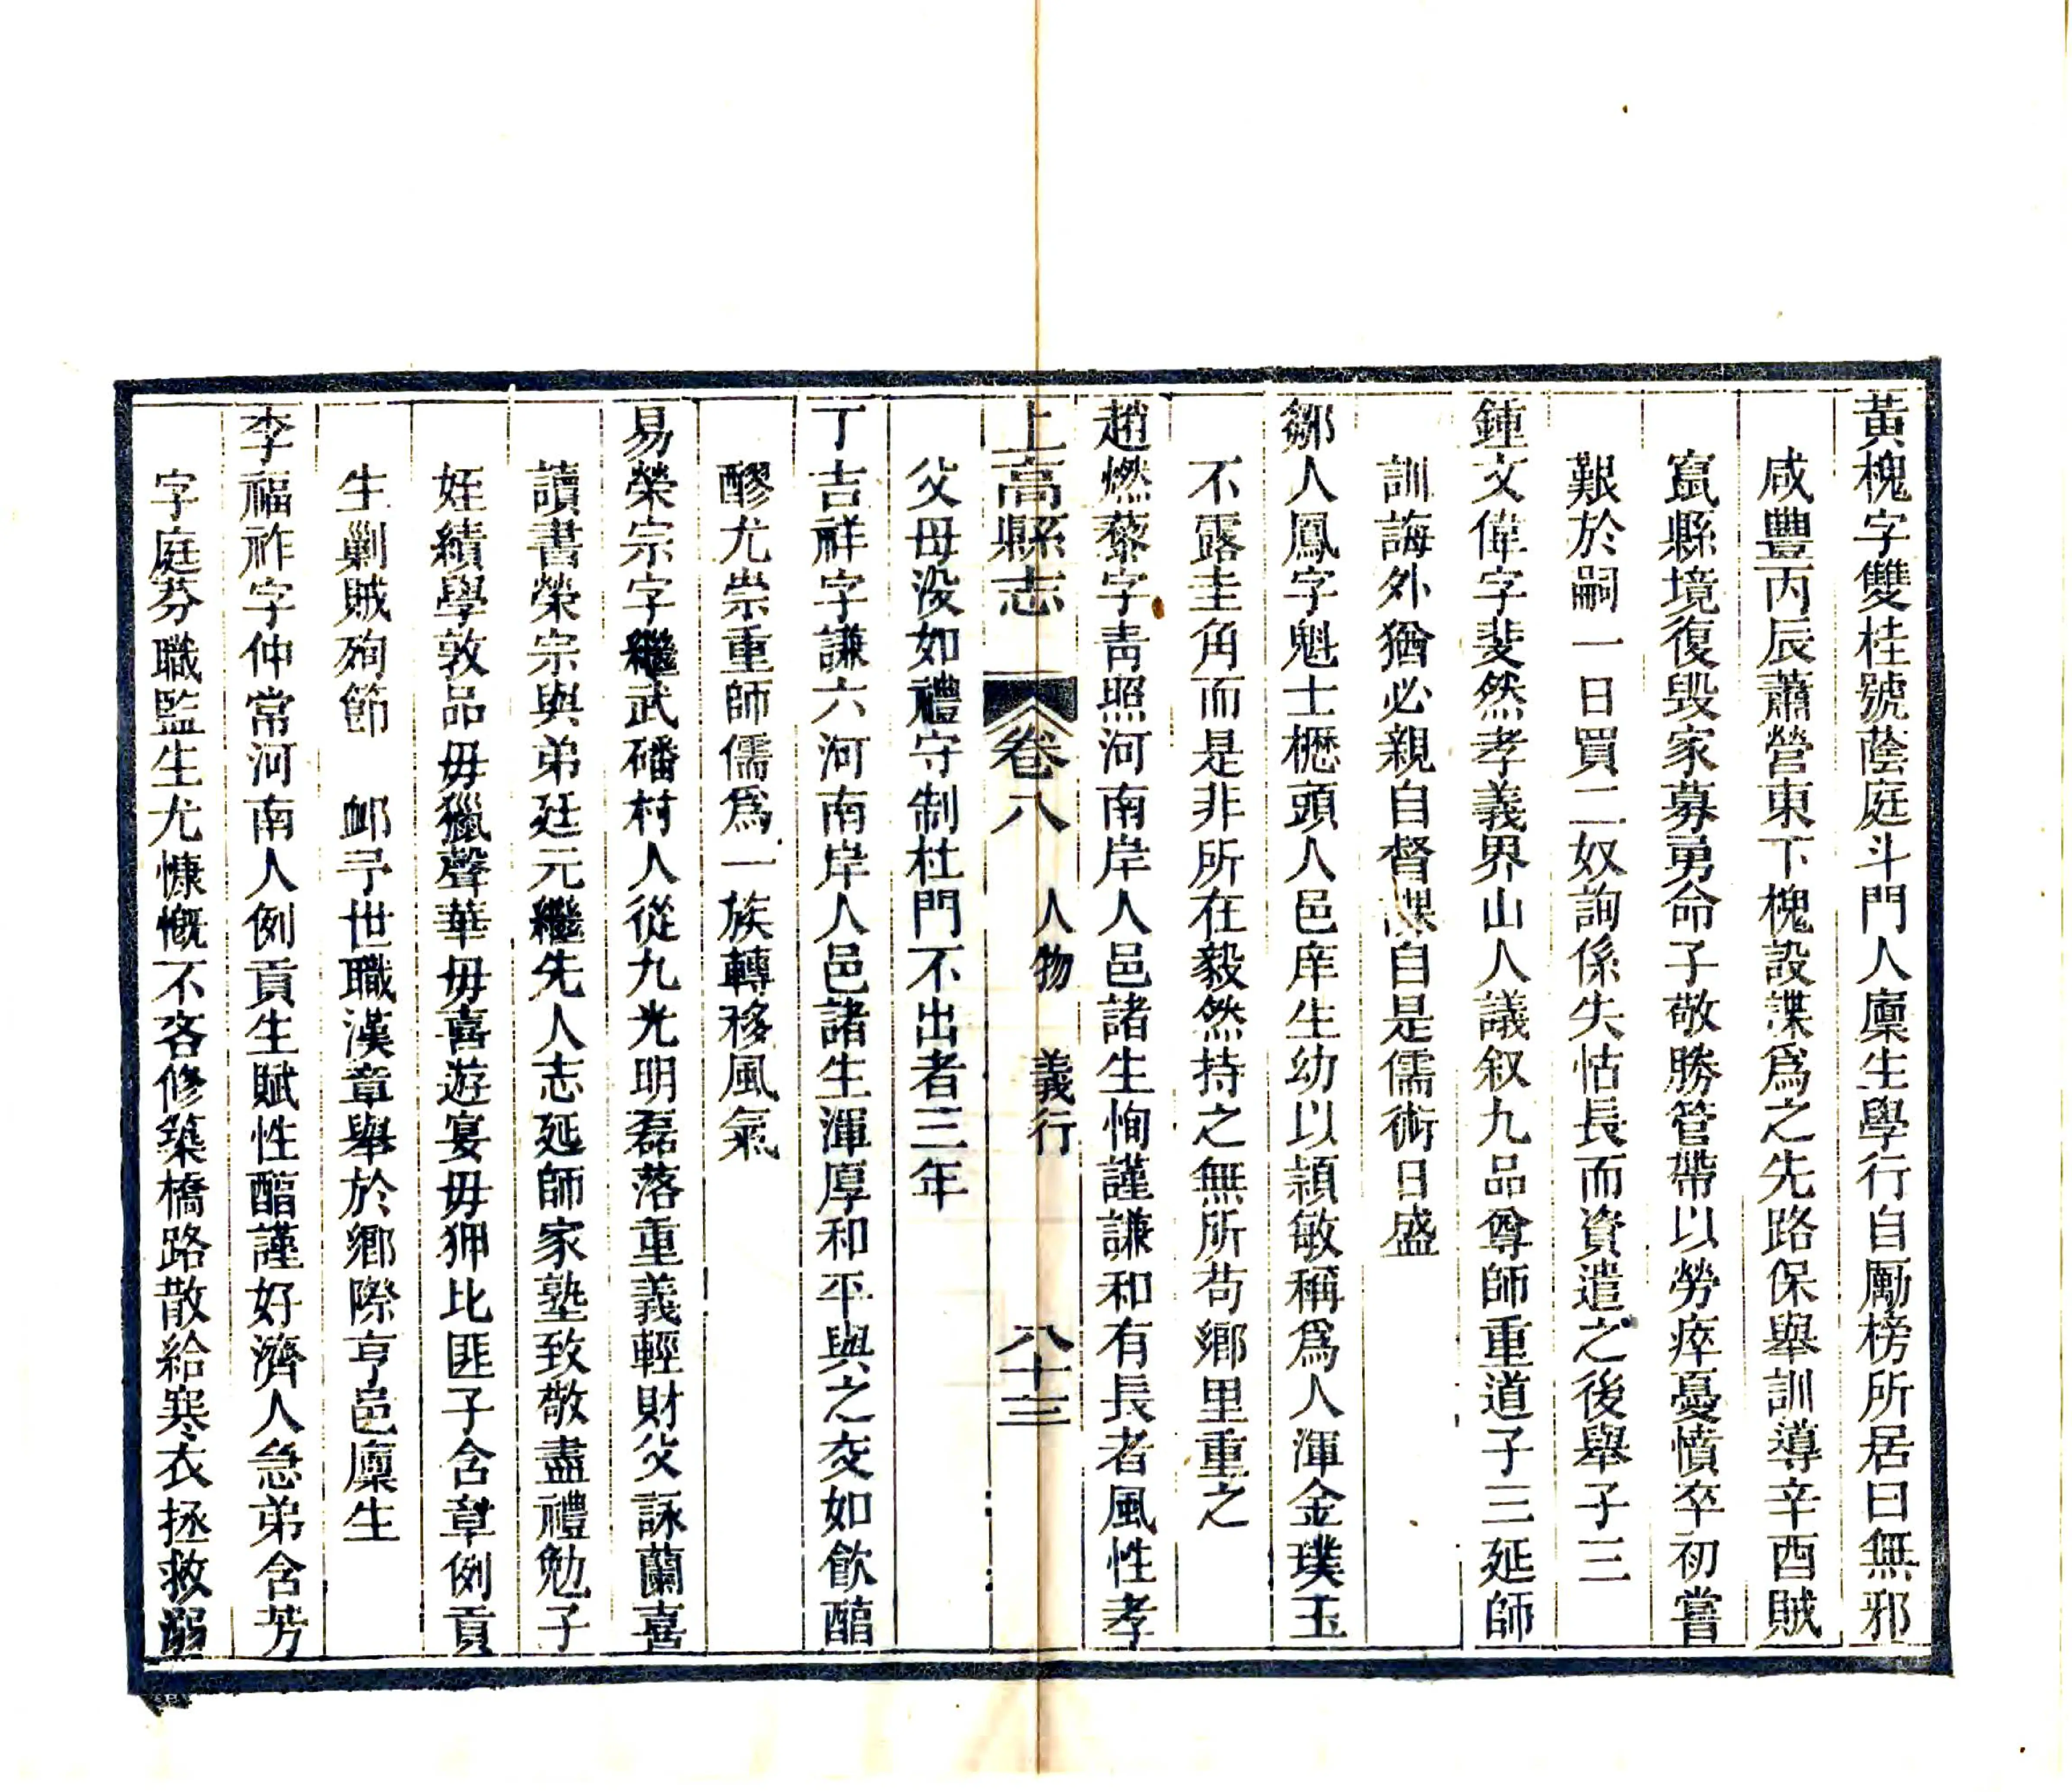 黃槐字雙桂號蔭庭斗門人廩生學行自勵榜所居曰無邪
咸豐丙辰蕭營東下槐設諜爲之先路保舉訓導辛酉賊
竄縣境復毁家募勇命子敬勝管帶以勞瘁憂憤卒初嘗
艱於嗣一日買二奴詢係失怙長而資遣之後舉子三
鍾文偉字斐然孝義界山人議叙九品尊師重道子三延師
訓誨外猶必親自督課自是儒術日盛
鄒人鳳字魁士櫪頭人邑庠生幼以穎敏稱爲人渾金璞玉
不露圭角而是非所在毅然持之無所苟鄉里重之
趙燃藜字靑照河南岸人邑諸生恂謹謙和有長者風性孝
上高縣志 卷八 人物 義行 八十三
父母没如禮守制杜門不出者三年
丁吉祥字謙六河南岸人邑諸生渾厚和平與之交如飮醕
醪尤崇重師儒爲一族轉移風氣
易榮宗字繼武磻村人從九光明磊落重義輕財父詠蘭喜
讀書榮宗與弟廷元繼先人志延師家塾致敬盡禮勉子
姪績學敦品毋獵聲華毋喜遊宴毋狎比匪子含章例貢
生剿賊殉節 邺予世職漢章舉於鄉際亨邑廩生
李福祚字仲常河南人例貢生賦性醕謹好濟人急弟含芳
字庭芬職監生尤慷慨不吝修築橋路散給寒衣拯救溺